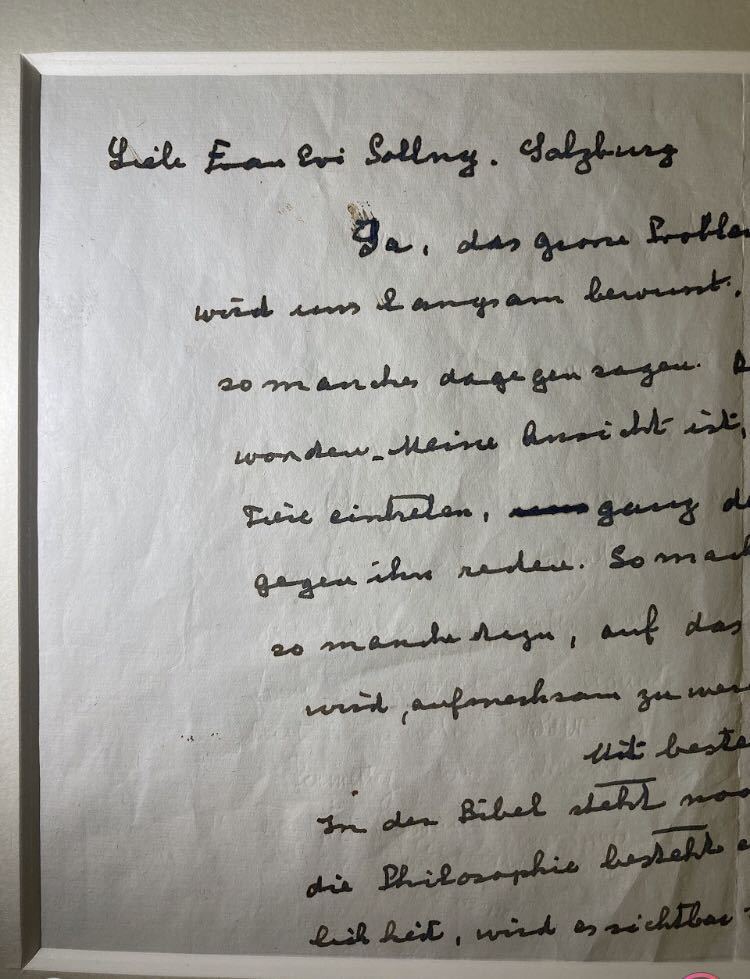 Liebe Frau Evi Sollny. Salzburg
Ja, das grosse Proble
wird uns langsam bewusst.
so manches dagegen sagen.
worden. Meine Ansicht ist,
Tiere eintreten, ganz
gegen ihn reden. So man
so manche dazu, auf das
wird, aufmerksam zu
Mit beste
In der Bibel steht noc
die Philosophie besteht
lichkeit, wird es sichtbar